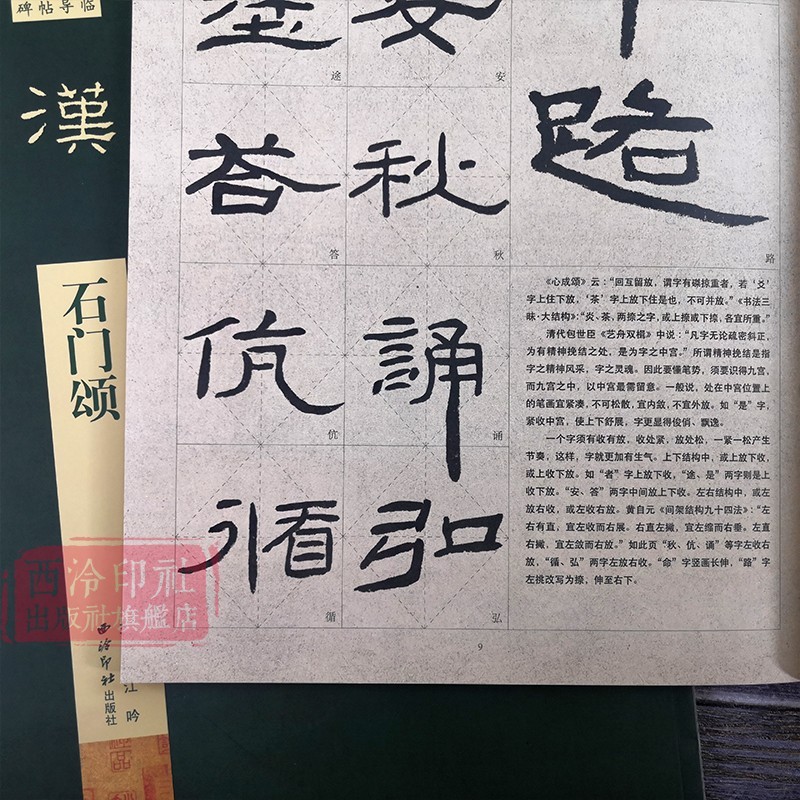 碑帖导临
漢
石门颂
江吟
西泠印社出版社
西泠印社
出版社旗艦店
途
安
荅
秋
路
答
秋
路
伉
誦
伉
诵
循
弘
循
弘
《心成颂》云：“回互留放，谓字有磔掠重者，若‘爻’
字上住下放，‘茶’字上放下住是也，不可并放。”《书法三
昧·大结构》：“炎、茶，两捺之字，或上捺或下捺，各宜所重。”
清代包世臣《艺舟双楫》中说：“凡字无论疏密斜正，
为有精神挽结之处，是为字之中宫。”所谓精神挽结是指
字之精神风采，字之灵魂。因此要懂笔势，须要识得九宫，
而九宫之中，以中宫最需留意。一般说，处在中宫位置上
的笔画宜紧凑，不可松散，宜内敛，不宜外放。如“是”字，
紧收中宫，使上下舒展，字更显得俊俏、飘逸。
一个字须有收有放，收处紧，放处松，一紧一松产生
节奏，这样，字就更加有生气。上下结构中，或上放下收，
或上收下放。如“者”字上放下收，“途、是”两字则是上
收下放。“安、答”两字中间放上下收。左右结构中，或左
放右收，或左收右放。黄自元《间架结构九十四法》：“左
右有直，宜左收而右展。右直左撇，宜左缩而右垂。左直
右撇，宜左敛而右放。”如此页“秋、伉、诵”等字左收右
放，“循、弘”两字左放右收。“命”字竖画长伸，“路”字
左挑改写为捺，伸至右下。
9